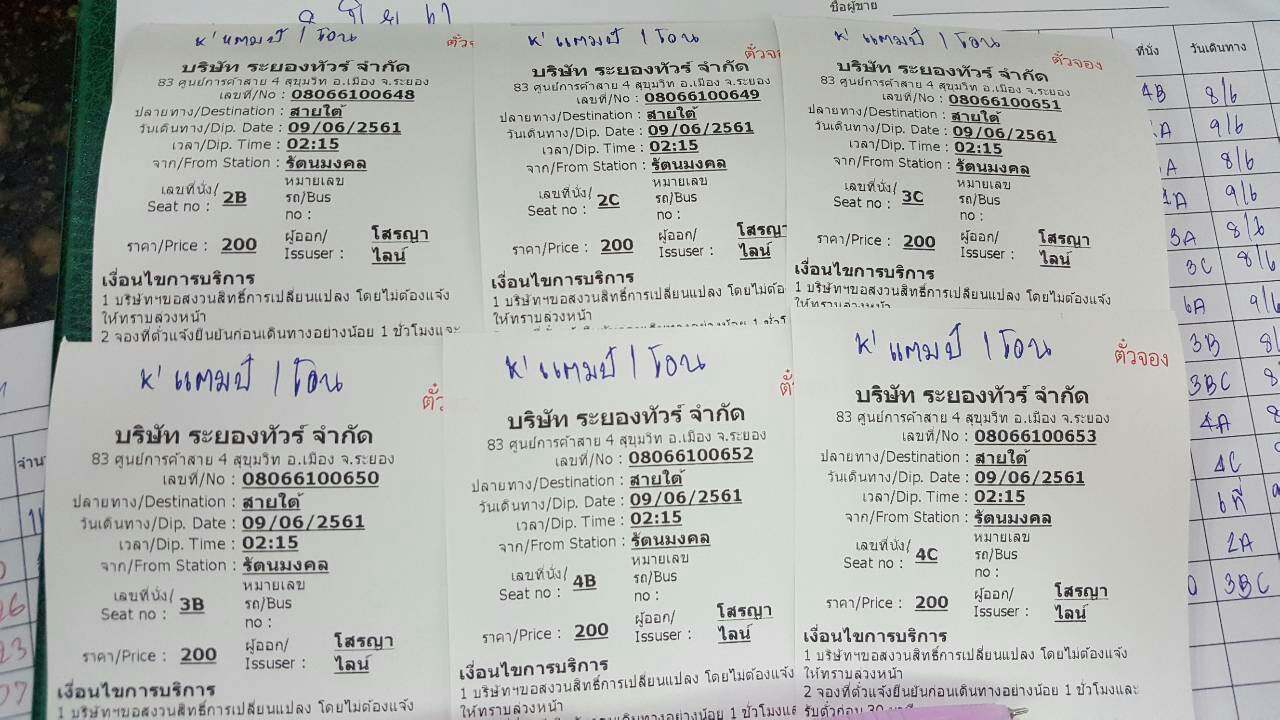 ชื่อผู้ขาย
ที่นั่ง วันเดินทาง
4B 8/6
9/6
8/6
9/6
3A 8/6
3C 8/6
6A 9/6
3B
3BC
4A
4C
6 ที่
2A
3BC
ค' แตมป์ / โอน
ตั๋วจ
บริษัท ระยองทัวร์ จำกัด
83 ศูนย์การค้าสาย 4 สุขุมวิท อ.เมือง จ.ระยอง
เลขที่/No : 08066100648
ปลายทาง/Destination : สายใต้
วันเดินทาง/Dip. Date : 09/06/2561
เวลา/Dip. Time : 02:15
จาก/From Station : รัตนมงคล
เลขที่นั่ง/ Seat no : 2B หมายเลข รถ/Bus no :
ราคา/Price : 200 ผู้ออก/ Issuser : โสรญา ไลน์
เงื่อนไขการบริการ
1 บริษัทฯขอสงวนสิทธิ์การเปลี่ยนแปลง โดยไม่ต้องแจ้ง
ให้ทราบล่วงหน้า
2 จองที่ตั๋วแจ้งยืนยันก่อนเดินทางอย่างน้อย 1 ชั่วโมงและ
ค' แตมป์ / โอน
ตั๋วจอ
บริษัท ระยองทัวร์ จำกัด
83 ศูนย์การค้าสาย 4 สุขุมวิท อ.เมือง จ.ระยอง
เลขที่/No : 08066100649
ปลายทาง/Destination : สายใต้
วันเดินทาง/Dip. Date : 09/06/2561
เวลา/Dip. Time : 02:15
จาก/From Station : รัตนมงคล
เลขที่นั่ง/ Seat no : 2C หมายเลข รถ/Bus no :
ราคา/Price : 200 ผู้ออก/ Issuser : โสรญา ไลน์
เงื่อนไขการบริการ
1 บริษัทฯขอสงวนสิทธิ์การเปลี่ยนแปลง โดยไม่ต้อ
ให้ทราบล่วงหน้า
ค' แตมป์ / โอน
ตั๋วจอง
บริษัท ระยองทัวร์ จำกัด
83 ศูนย์การค้าสาย 4 สุขุมวิท อ.เมือง จ.ระยอง
เลขที่/No : 08066100651
ปลายทาง/Destination : สายใต้
วันเดินทาง/Dip. Date : 09/06/2561
เวลา/Dip. Time : 02:15
จาก/From Station : รัตนมงคล
เลขที่นั่ง/ Seat no : 3C หมายเลข รถ/Bus no :
ราคา/Price : 200 ผู้ออก/ Issuser : โสรญา ไลน์
เงื่อนไขการบริการ
1 บริษัทฯขอสงวนสิทธิ์การเปลี่ยนแปลง โดยไม่ต้องแจ้ง
ให้ทราบล่วงหน้า
ค' แตมป์ / โอน
ตั๋ว
บริษัท ระยองทัวร์ จำกัด
83 ศูนย์การค้าสาย 4 สุขุมวิท อ.เมือง จ.ระยอง
เลขที่/No : 08066100650
ปลายทาง/Destination : สายใต้
วันเดินทาง/Dip. Date : 09/06/2561
เวลา/Dip. Time : 02:15
จาก/From Station : รัตนมงคล
เลขที่นั่ง/ Seat no : 3B หมายเลข รถ/Bus no :
ราคา/Price : 200 ผู้ออก/ Issuser : โสรญา ไลน์
เงื่อนไขการบริการ
1 บริษัทฯขอสงวนสิทธิ์การเปลี่ยนแปลง โดยไม่ต้องแจ้ง
ค' แตมป์ / โอน
ตั๋
บริษัท ระยองทัวร์ จำกัด
83 ศูนย์การค้าสาย 4 สุขุมวิท อ.เมือง จ.ระยอง
เลขที่/No : 08066100652
ปลายทาง/Destination : สายใต้
วันเดินทาง/Dip. Date : 09/06/2561
เวลา/Dip. Time : 02:15
จาก/From Station : รัตนมงคล
เลขที่นั่ง/ Seat no : 4B หมายเลข รถ/Bus no :
ราคา/Price : 200 ผู้ออก/ Issuser : โสรญา ไลน์
เงื่อนไขการบริการ
1 บริษัทฯขอสงวนสิทธิ์การเปลี่ยนแปลง โดยไม่ต้องแจ้ง
ให้ทราบล่วงหน้า
ค' แตมป์ / โอน
ตั๋วจอง
บริษัท ระยองทัวร์ จำกัด
83 ศูนย์การค้าสาย 4 สุขุมวิท อ.เมือง จ.ระยอง
เลขที่/No : 08066100653
ปลายทาง/Destination : สายใต้
วันเดินทาง/Dip. Date : 09/06/2561
เวลา/Dip. Time : 02:15
จาก/From Station : รัตนมงคล
เลขที่นั่ง/ Seat no : 4C หมายเลข รถ/Bus no :
ราคา/Price : 200 ผู้ออก/ Issuser : โสรญา ไลน์
เงื่อนไขการบริการ
1 บริษัทฯขอสงวนสิทธิ์การเปลี่ยนแปลง โดยไม่ต้องแจ้ง
ให้ทราบล่วงหน้า
2 จองที่ตั๋วแจ้งยืนยันก่อนเดินทางอย่างน้อย 1 ชั่วโมงและ